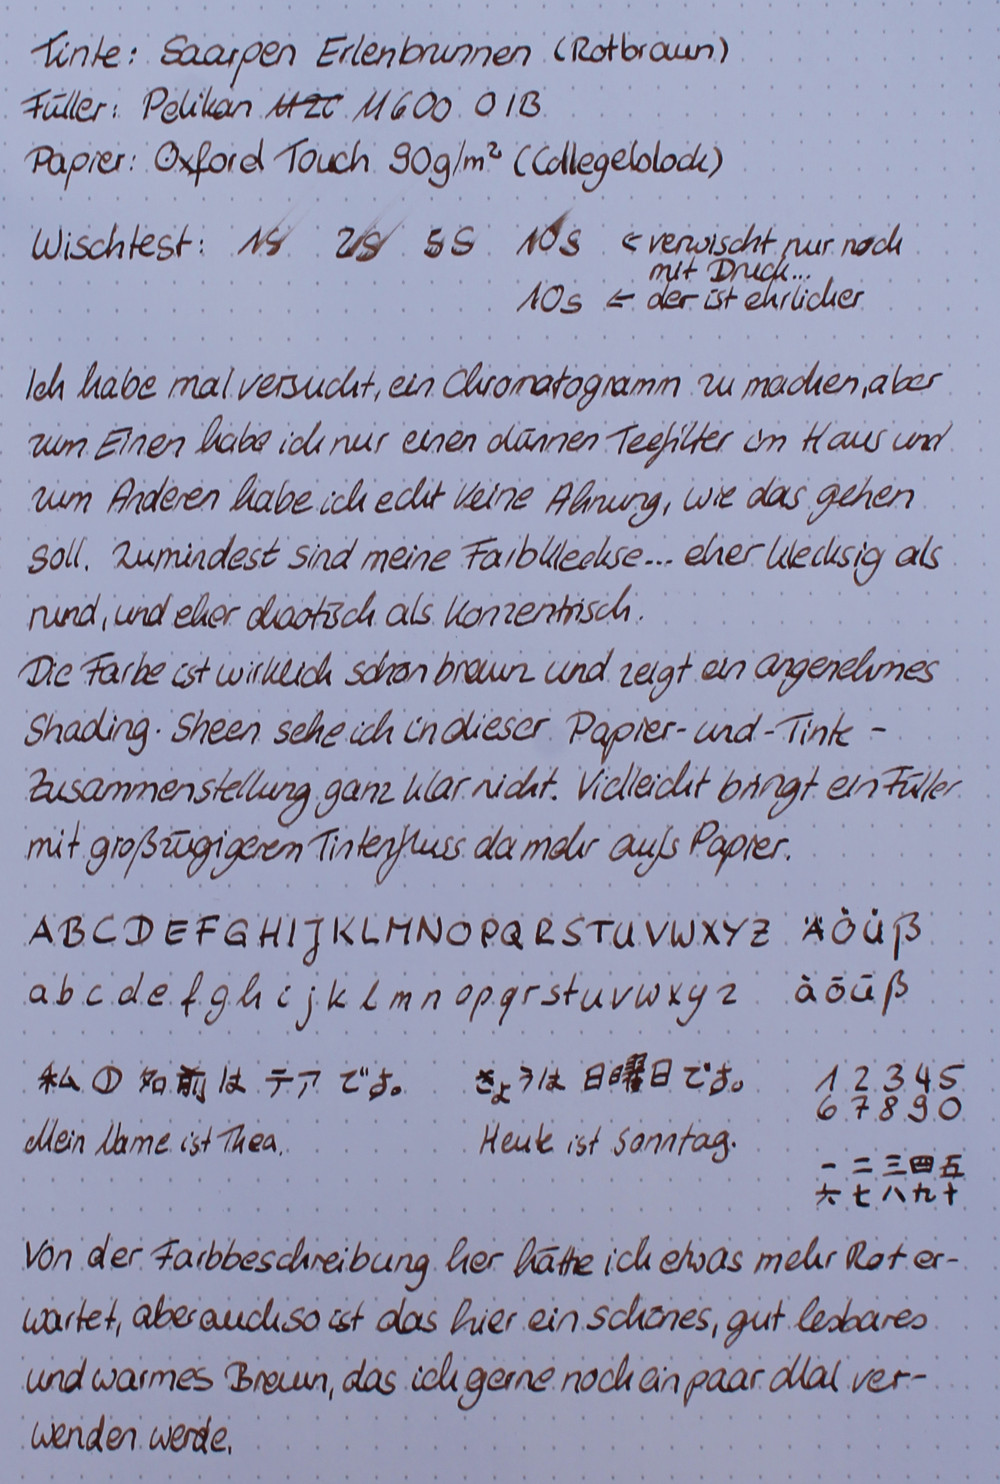 Tinte: Saarpen Erlenbrunnen (Rotbraun)
Füller: Pelikan M600 OIB
Papier: Oxford Touch 90g/m² (Collegeblock)
Wischtest: 1s 2s 5s 10s ← verwischt nur noch
mit Druck...
10s ← der ist ehrlicher
Ich habe mal versucht, ein Chromatogramm zu machen, aber
zum Einen habe ich nur einen dünnen Teefilter im Haus und
zum Anderen habe ich echt keine Ahnung, wie das gehen
soll. Zumindest sind meine Farbkleckse... eher klecksig als
rund, und eher chaotisch als konzentrisch.
Die Farbe ist wirklich schön braun und zeigt ein angenehmes
Shading. Sheen sehe ich in dieser Papier-und-Tinte-
Zusammenstellung ganz klar nicht. Vielleicht bringt ein Füller
mit großzügigerem Tintenfluss da mehr aufs Papier.
ABCDEFGHIJKLMNOPQRSTUVWXYZ ÄÖÜß
abcdefghijklmnopqrstuvwxyz äöüß
私の名前はテアです。 きょうは日曜日です。 1 2 3 4 5
6 7 8 9 0
Mein Name ist Thea. Heute ist Sonntag.
一二三四五
六七八九十
Von der Farbbeschreibung her hätte ich etwas mehr Rot er-
wartet, aber auch so ist das hier ein schönes, gut lesbares
und warmes Braun, das ich gerne noch ein paar Mal ver-
wenden werde.